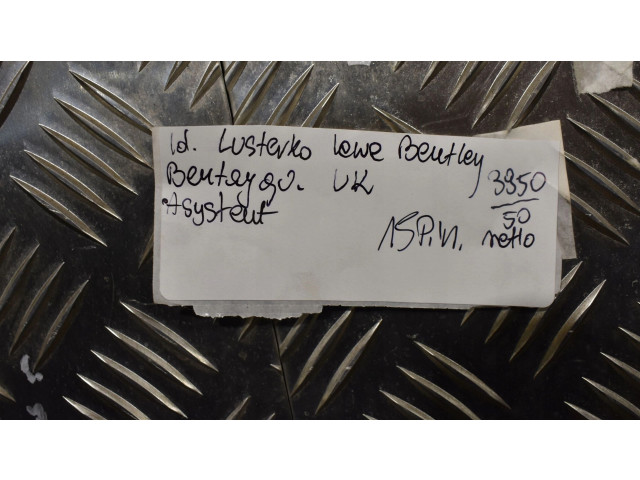 Kd. Lusterko lewe Bentley
Bentayga. UK 3950
Asystent 50
15P.in. netto